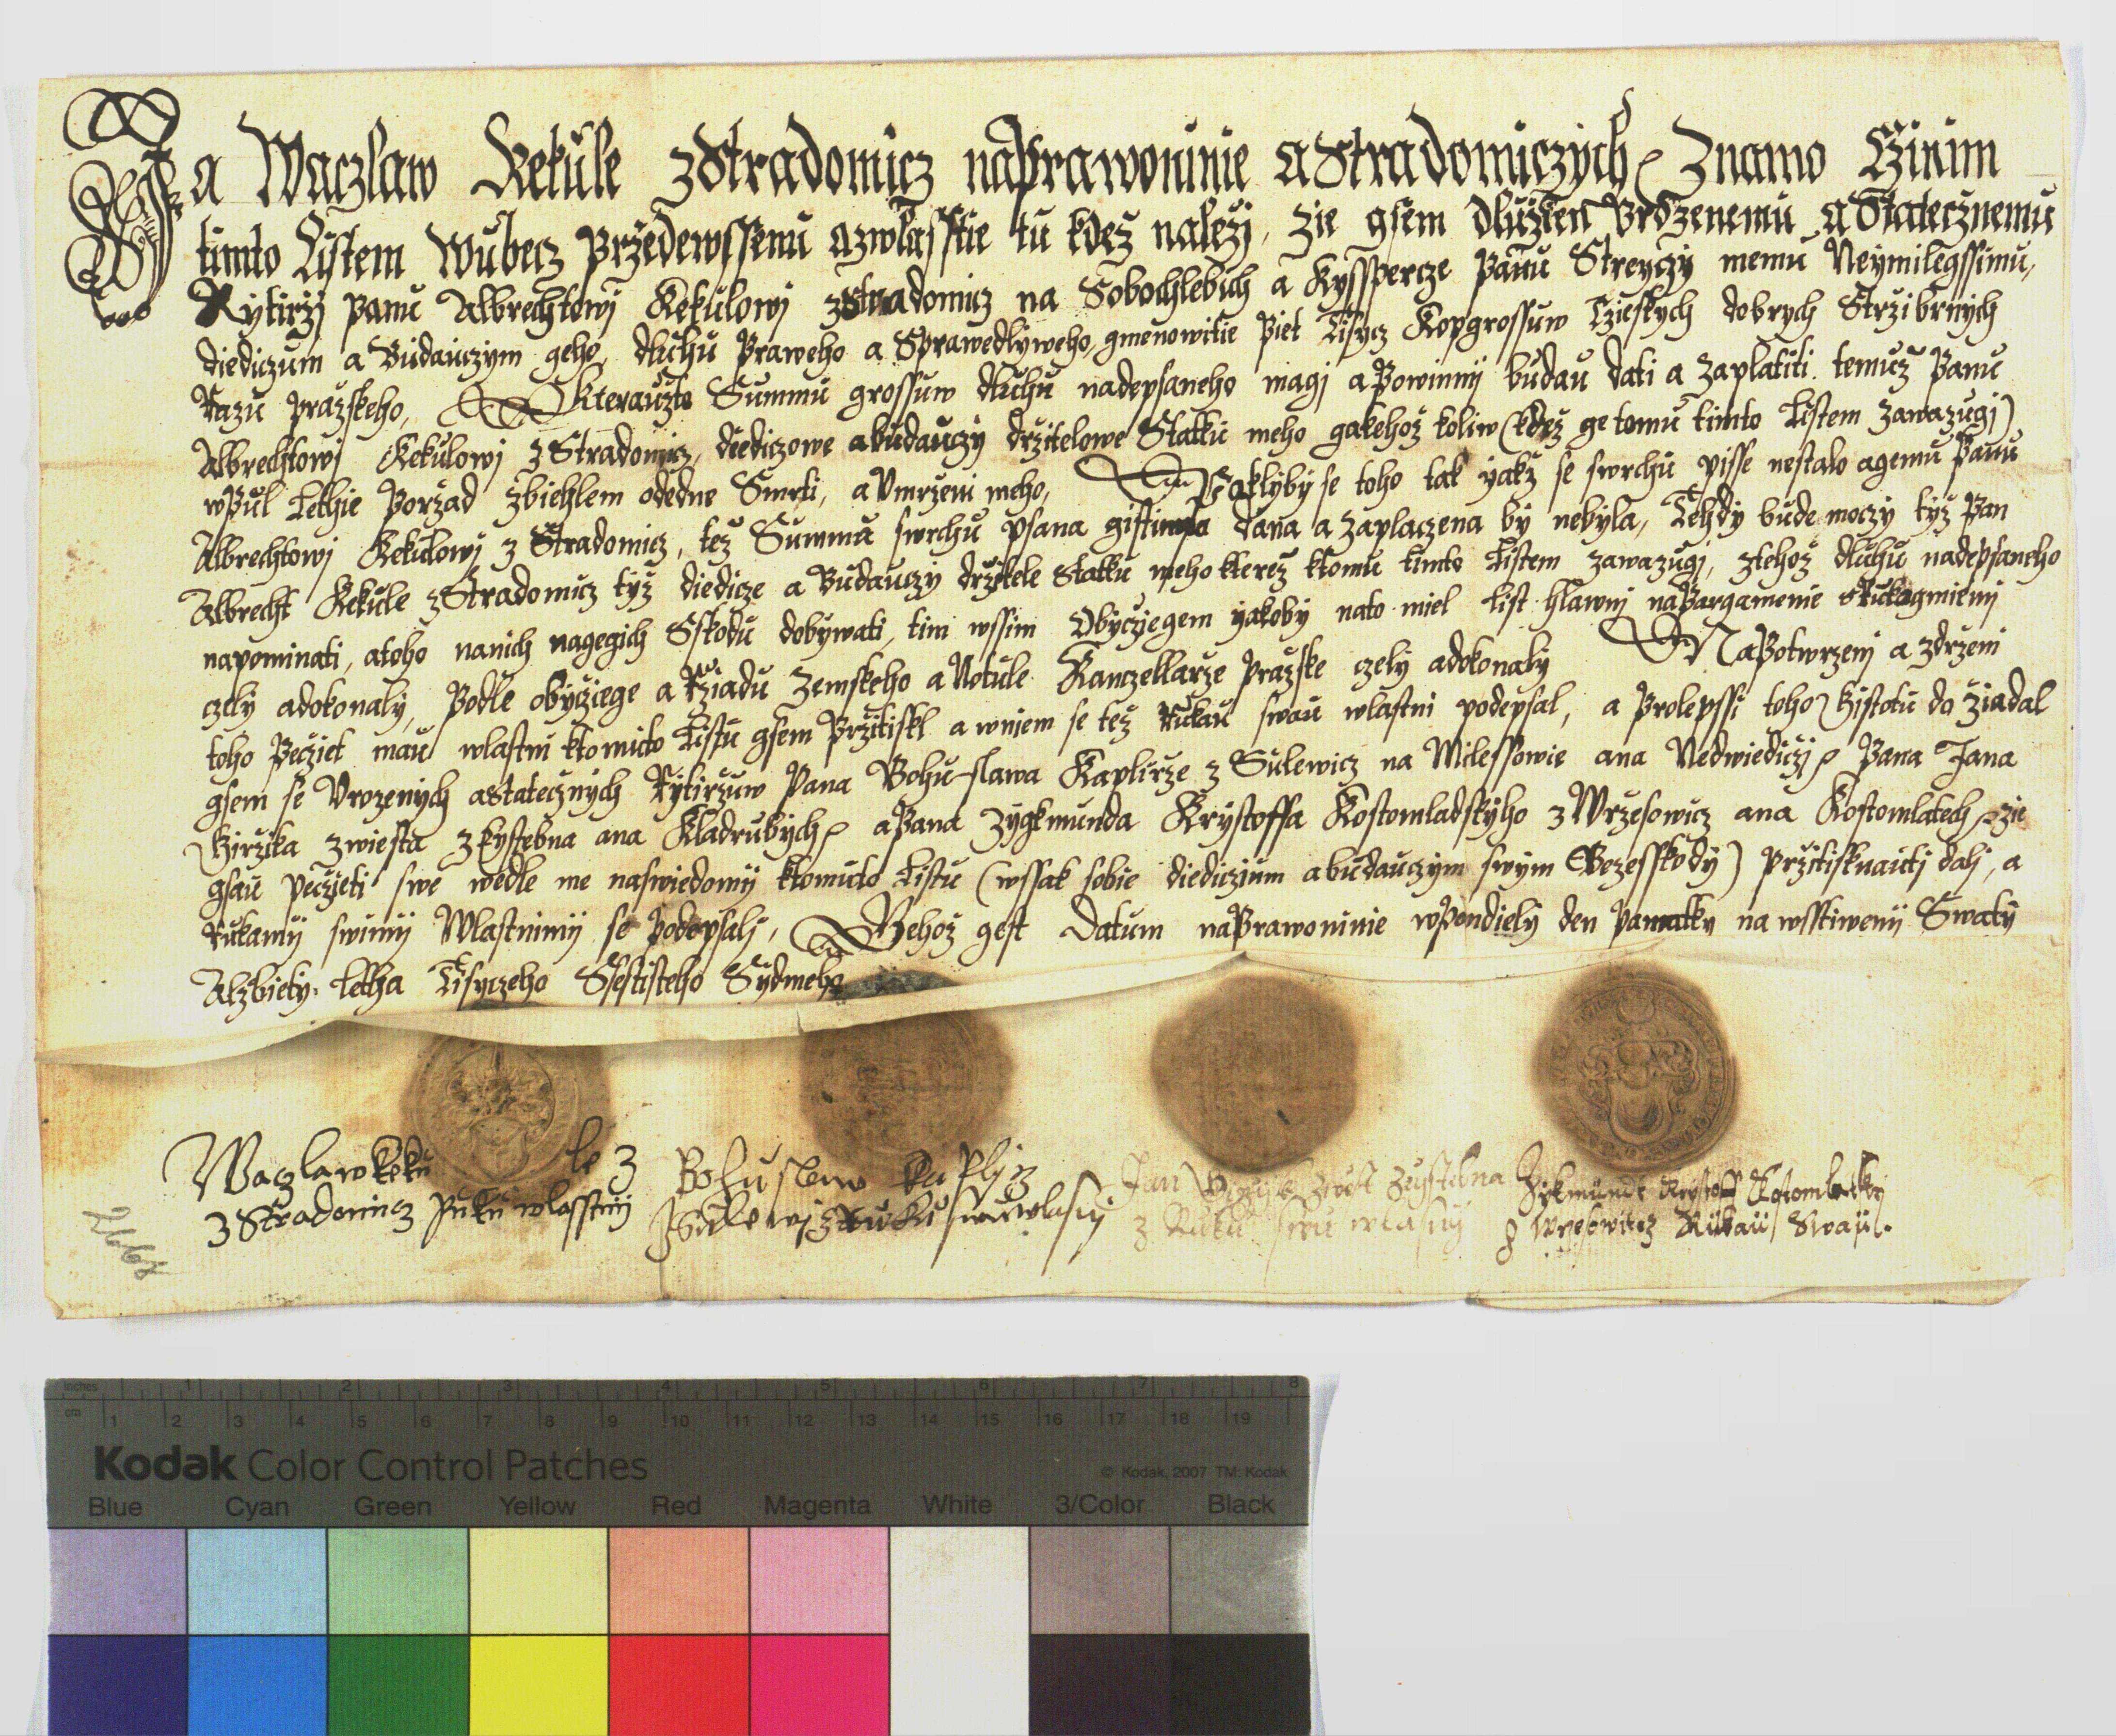 Ja Waczlaw Kekule z Stradomicz naprawoninie a Stradomiczych Znamo Czinim
timto Listem Wubecz przedewssemi azwlasstie tu kdez nalezj, zie gsem dluzien Vrozenemu a Statecznemu
Rytirzj panu Albrechtowj Kekulowj z Stradomicz na Sobochlebich a Kyssperze Panu Streyczy memu Neymilegssimu,
diediczum a Budauczym geho, dluhu Praweho a Sprawedlyweho, gmenowitie Piet Tisycz Kopgrossuw Czieskych dobrych Strzibrnych
Razu prazskeho, Kterauzto Summu grossuw dluhu nadepsaneho magj a Powinnj budau dati a zaplatiti temuz Panu
Albrechtowj Kekulowj z Stradomicz, diediczowe abudauczy drzitelowe Statku meho gakehoz koliw (kdez ge tomu timto Listem zawazugj)
wpul Lethie Porzad zbiehlem odedne Smrti, a Vmrzeni meho, Paklyby se toho tak yakz se swrchu pisse nestalo agemu Panu
Albrechtowj Kekulowj z Stradomicz, tez Summa swrchu psana gistinna dana a zaplaczena by nebyla, Tehdy bude moczy tyz Pan
Albrecht Kekule z Stradomicz tyz diedicze a Budauczy drzitele Statku meho kterez ktomu timto Listem zawazugj, ztehoz dluhu nadepsaneho
napominati, atoho nanich nagegich Sskodu dobywati, tim wssim Obyczegem yakoby nato miel list hlawnj naPargamenie sRukogmiemj
czely adokonaly, Podle obyczege a Rziadu Zemskeho a Notule Kanczellarze prazske czely adokonaly NaPotwrzenj a zdrzeni
toho Peczet mau wlastni ktomuto Listu gsem Przitiskl a wniem se tez Rukau swau wlastni podepsal, a Prolepssi toho Gistotu do ziadal
gsem se Vrozenych astatecznych Rytirzuw Pana Bohuslawa Kaplirze z Sulewicz na Milessowie ana Nedwiediczj Pana Jana
Girzika zwiesta z kystebna ana Kladrubych aPana Zygkmunda Krystoffa Kostomladskyho z Wrzesowicz ana Kostomlatech zie
gsau peczeti swe wedle me naswiedomj ktomuto Listu (wssak sobie diediczium abudauczym swym Bezesskody) przitisknauti dalj, a
Rukamy swimy Wlastnimy se podepsalj, Gehoz gest Datum naPrawoninie wPondiely den pamatky na wsstiwenj Swaty
Alzbiety. Letha Tisyczeho Ssestisteho Sydmeho
Waczlaw Kekule z Bohuslaw Kaplirz Jan Zykmundt Kristoff Kostomlacky
z Stradomicz Ruku wlasstnj z Sulewicz Ruku swu wlasnj Ruku swu wlasnj z Wresowicz Rukau Swau.
Kodak Color Control Patches
© Kodak, 2007 TM: Kodak
inches 1 2 3 4 5 6 7 8
cm 1 2 3 4 5 6 7 8 9 10 11 12 13 14 15 16 17 18 19
Blue Cyan Green Yellow Red Magenta White 3/Color Black